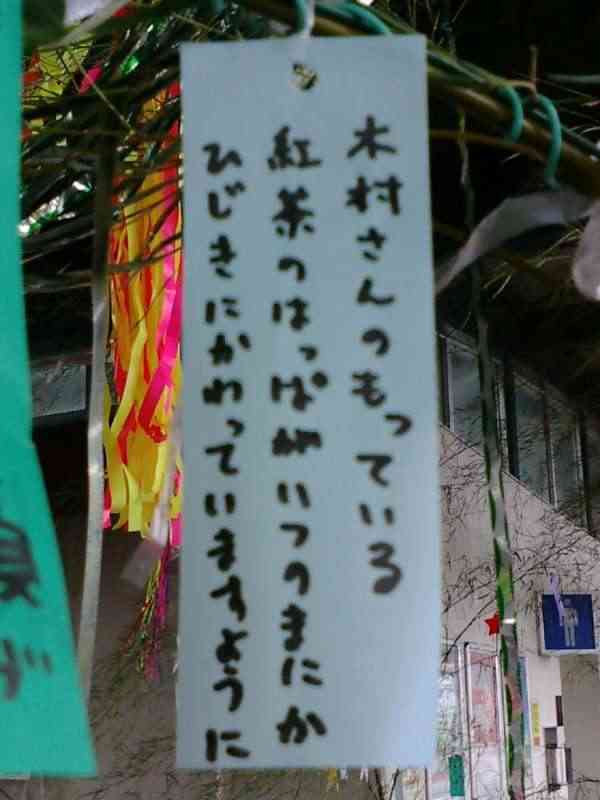 木村さんのもっている
紅茶のはっぱがいつのまにか
ひじきにかわっていますように